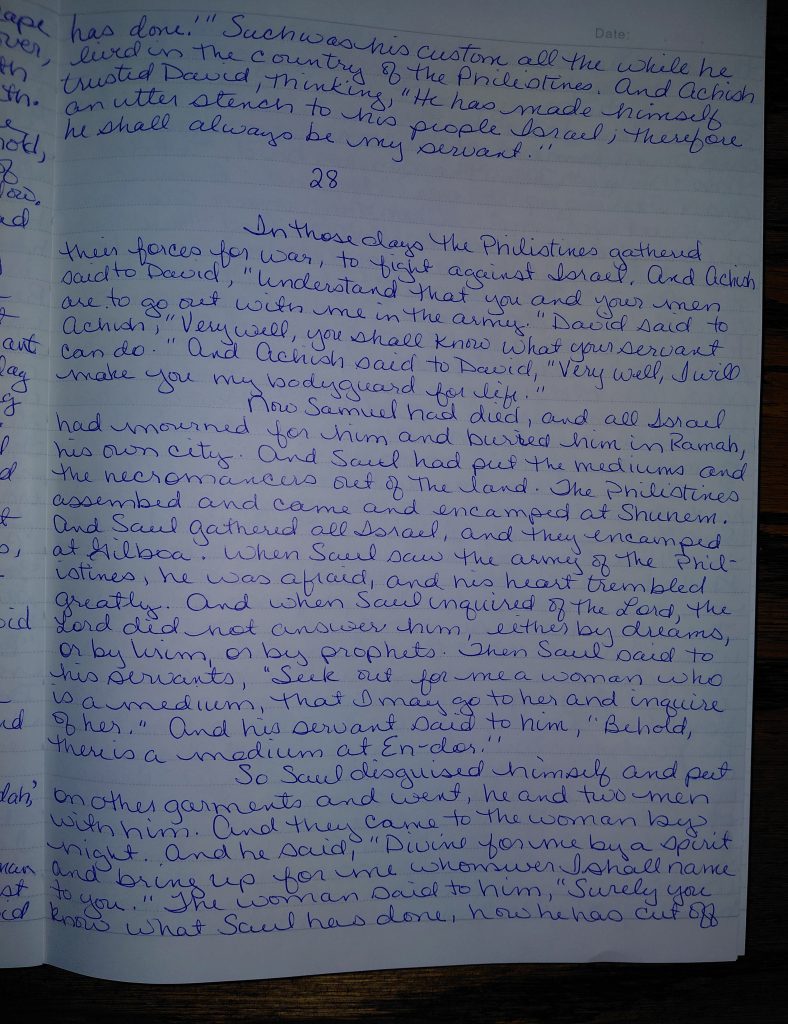 Date:
has done.'" Such was his custom all the while he
lived in the country of the Philistines. And Achish
trusted David, thinking, "He has made himself
an utter stench to his people Israel; therefore
he shall always be my servant."
28
In those days the Philistines gathered
their forces for war, to fight against Israel. And Achish
said to David, "Understand that you and your men
are to go out with me in the army." David said to
Achish, "Very well, you shall know what your servant
can do." And Achish said to David, "Very well, I will
make you my bodyguard for life."
Now Samuel had died, and all Israel
had mourned for him and buried him in Ramah,
his own city. And Saul had put the mediums and
the necromancers out of the land. The Philistines
assembed and came and encamped at Shunem.
And Saul gathered all Israel, and they encamped
at Gilboa. When Saul saw the army of the Phil-
istines, he was afraid, and his heart trembled
greatly. And when Saul inquired of the Lord, the
Lord did not answer him, either by dreams,
or by Urim, or by prophets. Then Saul said to
his servants, "Seek out for me a woman who
is a medium, that I may go to her and inquire
of her." And his servant said to him, "Behold,
there is a medium at En-dor."
So Saul disguised himself and put
on other garments and went, he and two men
with him. And they came to the woman by
night. And he said, "Divine for me by a spirit
and bring up for me whomever I shall name
to you." The woman said to him, "Surely you
know what Saul has done, how he has cut off